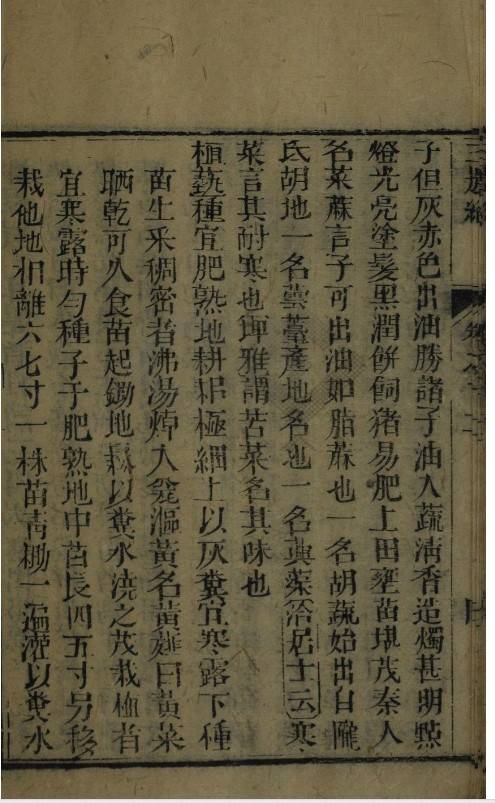 三農紀
子但灰赤色出油勝諸子油入蔬清香造燭甚明點
燈光亮塗髮黑潤餅飼猪易肥上田壅苗堪茂秦人
名菜蔴言子可出油如脂蔴也一名胡蔬始出自隴
氏胡地一名蕓薹產地名也一名興蕖洽居士云寒
菜言其耐寒也埤雅謂苦菜名其味也
植蓺種宜肥熟地耕耙極細土以灰糞宜寒露下種
苗生采稠密者沸湯焯入瓮漚黃名黃虀曰黃菜
晒乾可久食苗起鋤地鬆以糞水澆之茂栽植者
宜寒露時勻種子于肥熟地中苗長四五寸另移
栽他地相離六七寸一株苗靑鋤一遍灌以糞水